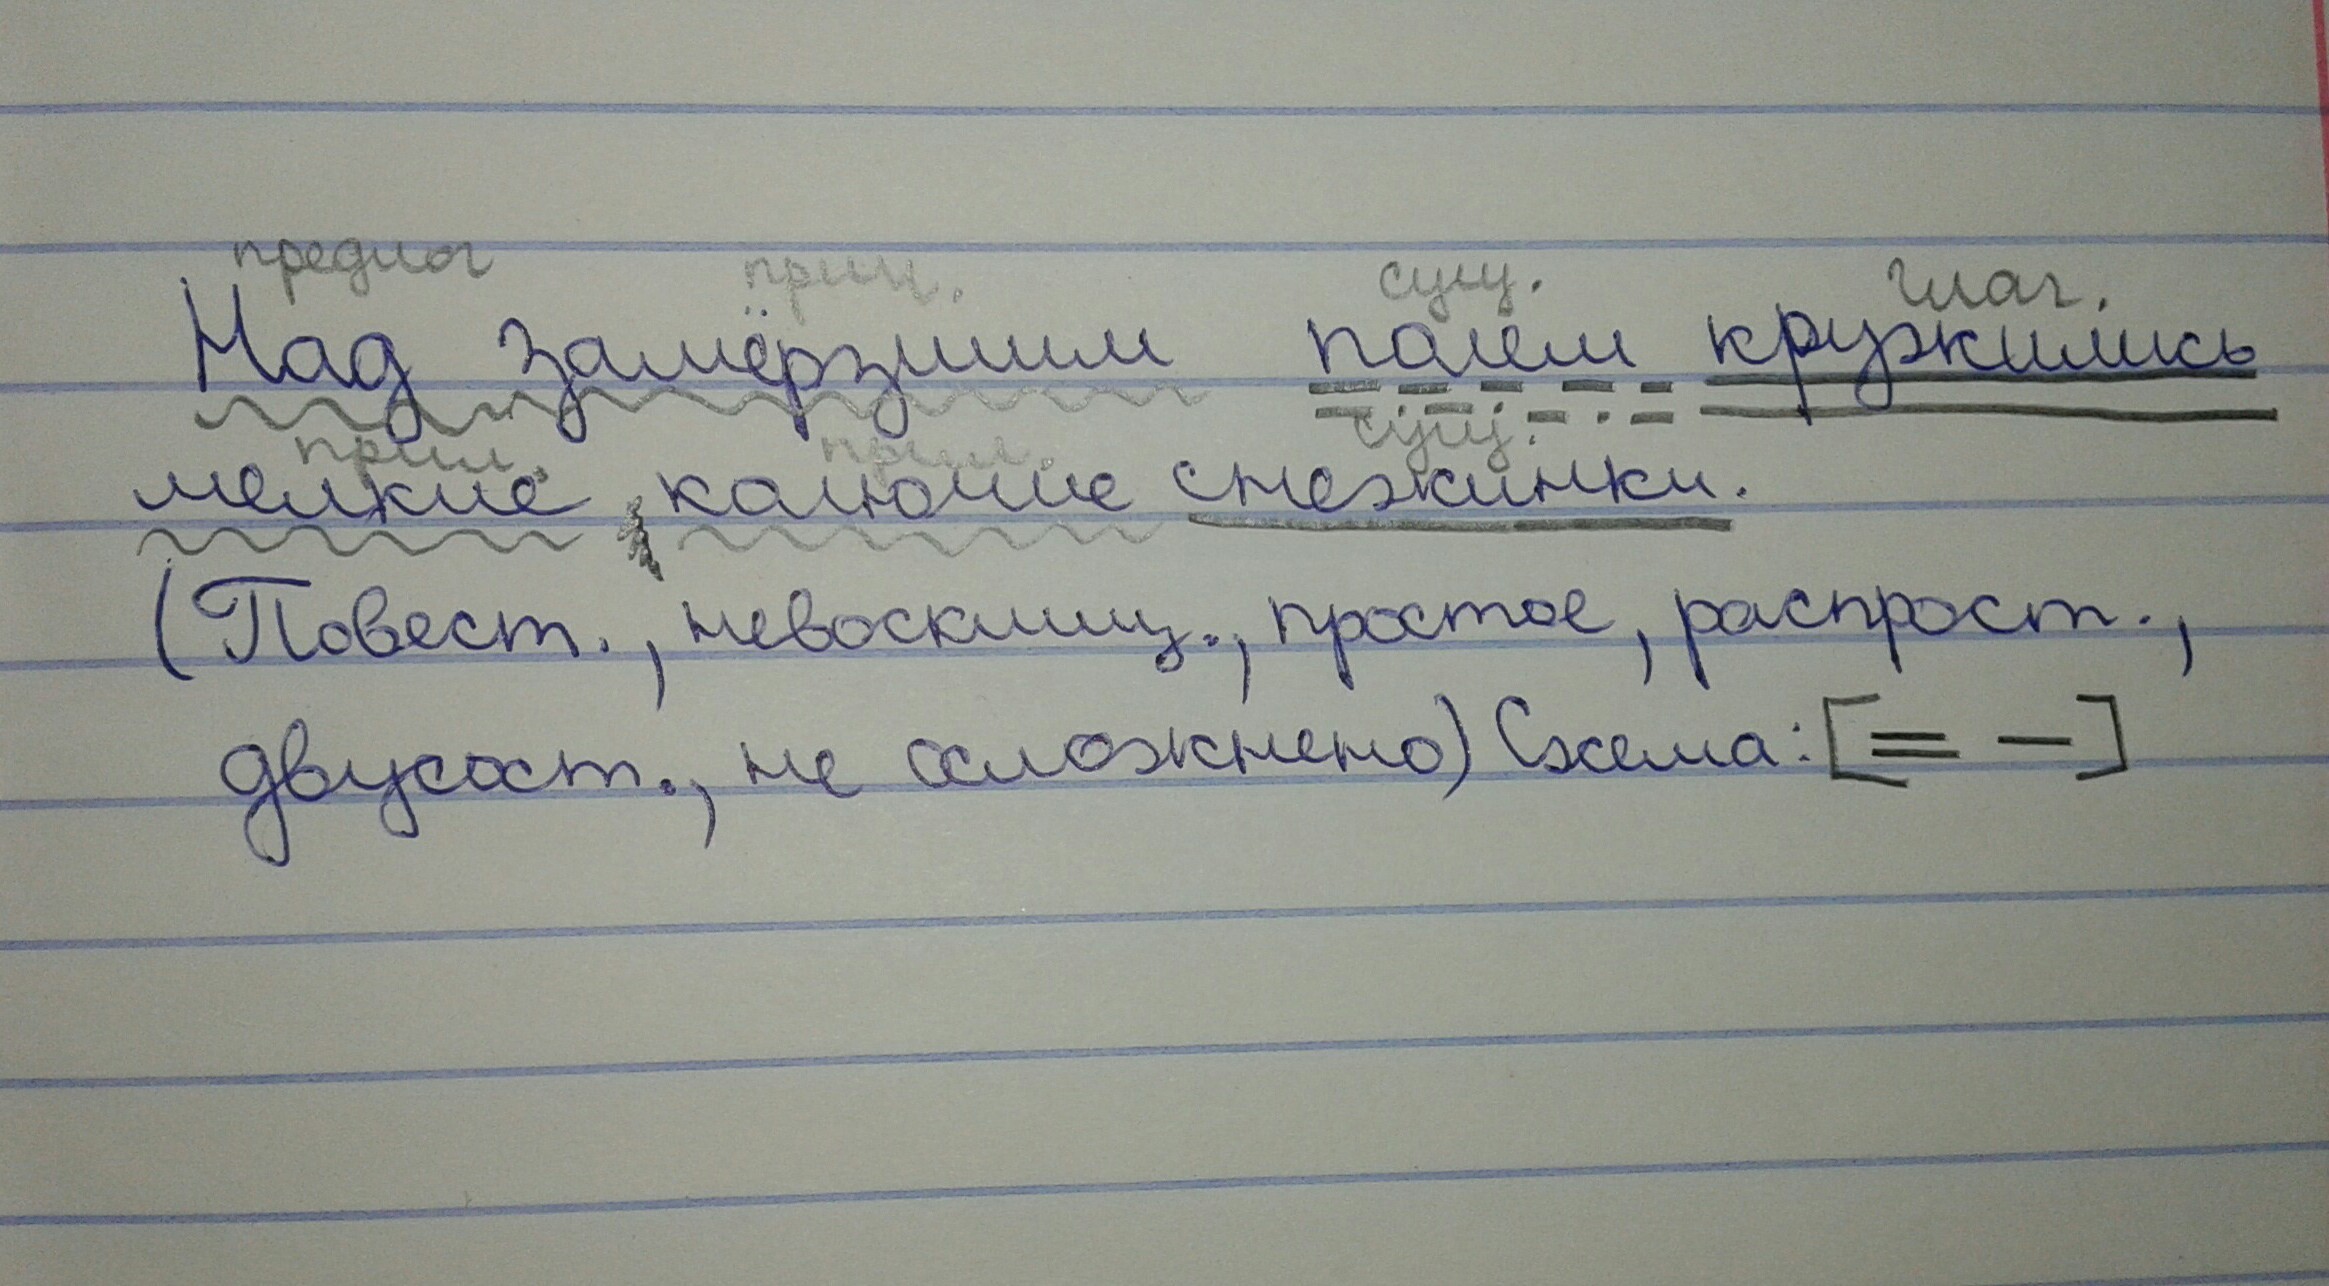 предлог прич. сущ. глаг.
Над замёрзшим полем кружились
прил. прил. сущ.
мелкие, колючие снежинки.
(Повест., невосклиц., простое, распрост.,
двусост., не осложнено) Схема: [= −]